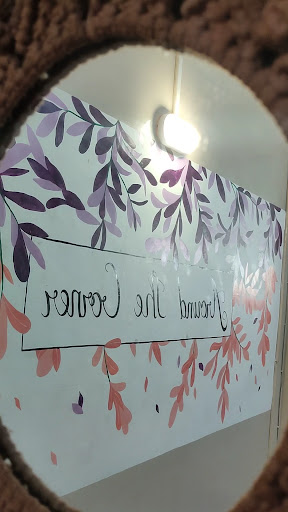 Around The Corner